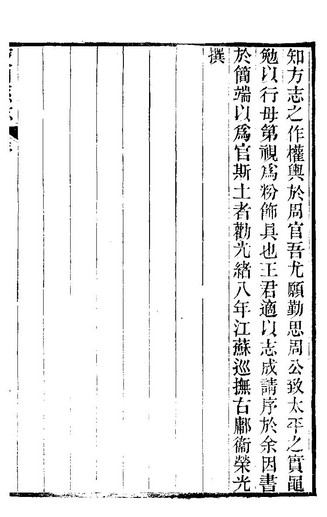 知方志之作權輿於周官吾尤願勤思周公致太平之實黽
勉以行毋第視為粉飾具也王君適以志成請序於余因書
於簡端以為官斯土者勸光緒八年江蘇巡撫古鄘衛榮光
撰